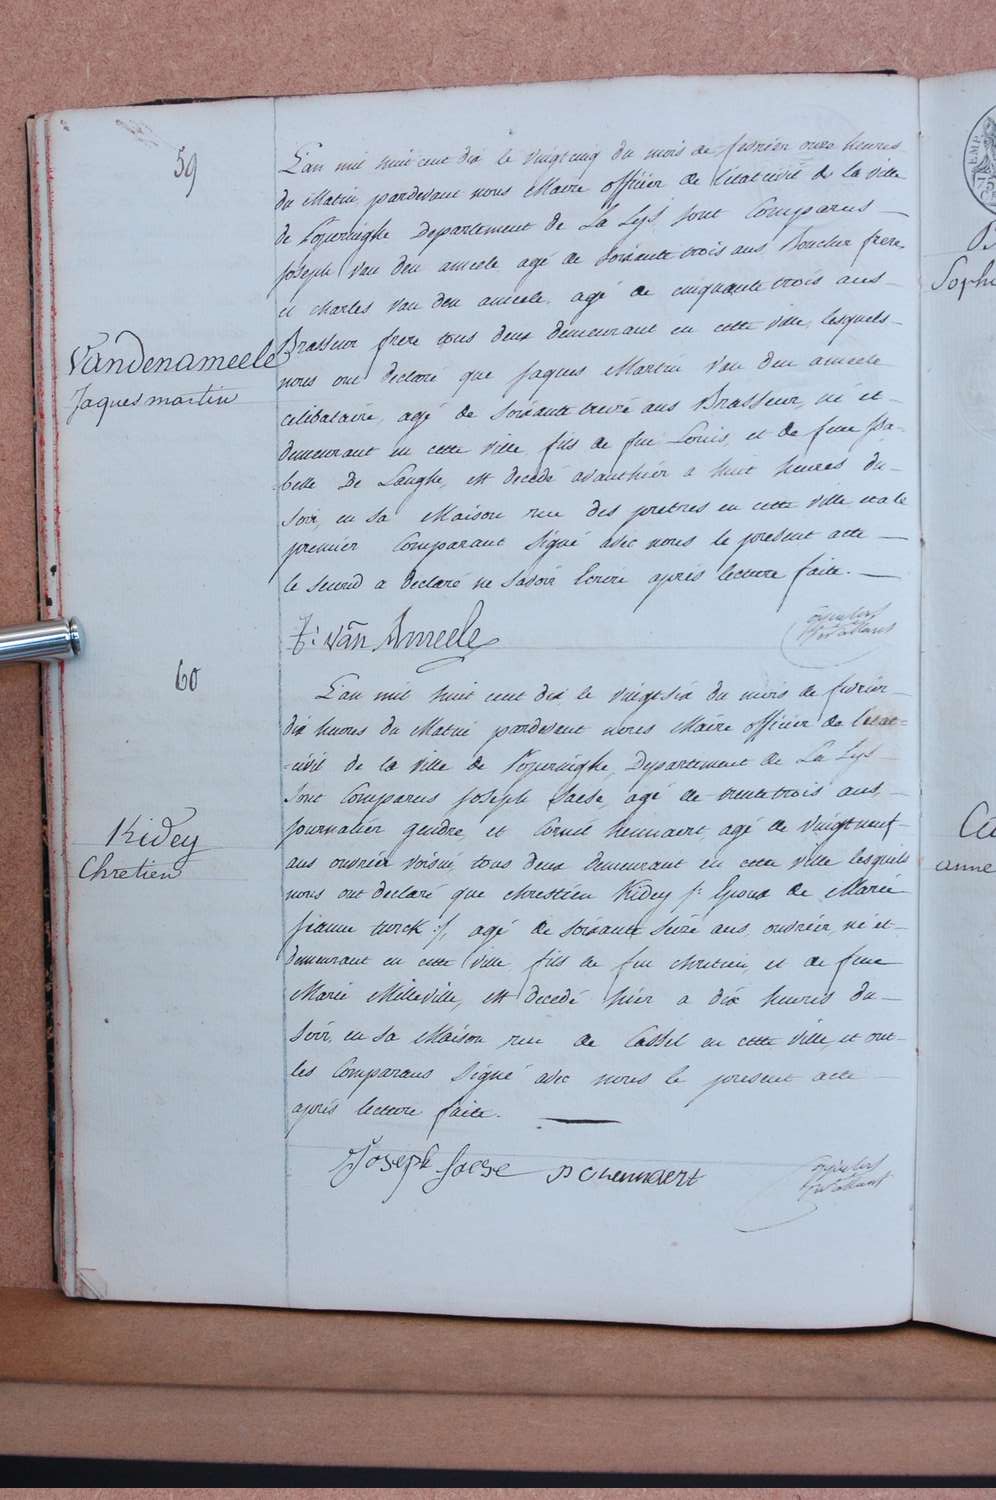 59
L'an mil huit cent dix le vingtcinq du mois de fevrier onze heures
du Matin, pardevant nous Maire officier de l'etat civil de la ville
de Poperinghe Departement de La Lys sont Comparus —
Joseph Van den ameele agé de soixante trois ans, Boucher frere,
et charles Van den ameele, agé de cinquante trois ans —
Brasseur frere tous deux demeurant en cette ville, lesquels —
nous ont declaré que Jaques Martin Van den ameele
celibataire, agé de soixante treize ans Brasseur, né et —
demeurant en cette ville, fils de feu Louis, et de feue Isa-
belle De Langhe, est decedé avanthier a huit heures du —
soir, en sa Maison rue des pretres en cette ville, et a le
premier Comparant signé avec nous le present acte —
le second a declaré ne savoir Ecrire après lecture faite. —
Vandenameele
Jaques martin
J: Van Ameele
60
L'an mil huit cent dix le vingtsix du mois de fevrier —
dix heures du Matin pardevant nous Maire officier de l'etat=
=civil de la ville de Poperinghe, Departement de La Lys —
sont Comparus Joseph Saese, agé de trente trois ans, —
Journalier gendre, et Corneil hennaert, agé de vingtneuf —
ans ouvrier voisin, tous deux demeurant en cette ville lesquels
nous ont declaré que chrestien Kidey /: Epoux de Marie
Jeanne turck :/, agé de soixante seize ans, ouvrier, né et —
demeurant en cette ville, fils de feu chretien, et de feue
Marie Milleville, est decedé hier a dix heures du —
soir, en sa Maison rue de Cassel en cette ville, et ont —
les Comparans signé avec nous le present acte —
après lecture faite. —
Kidey
Chretien
Joseph Saese
Sophi
anne